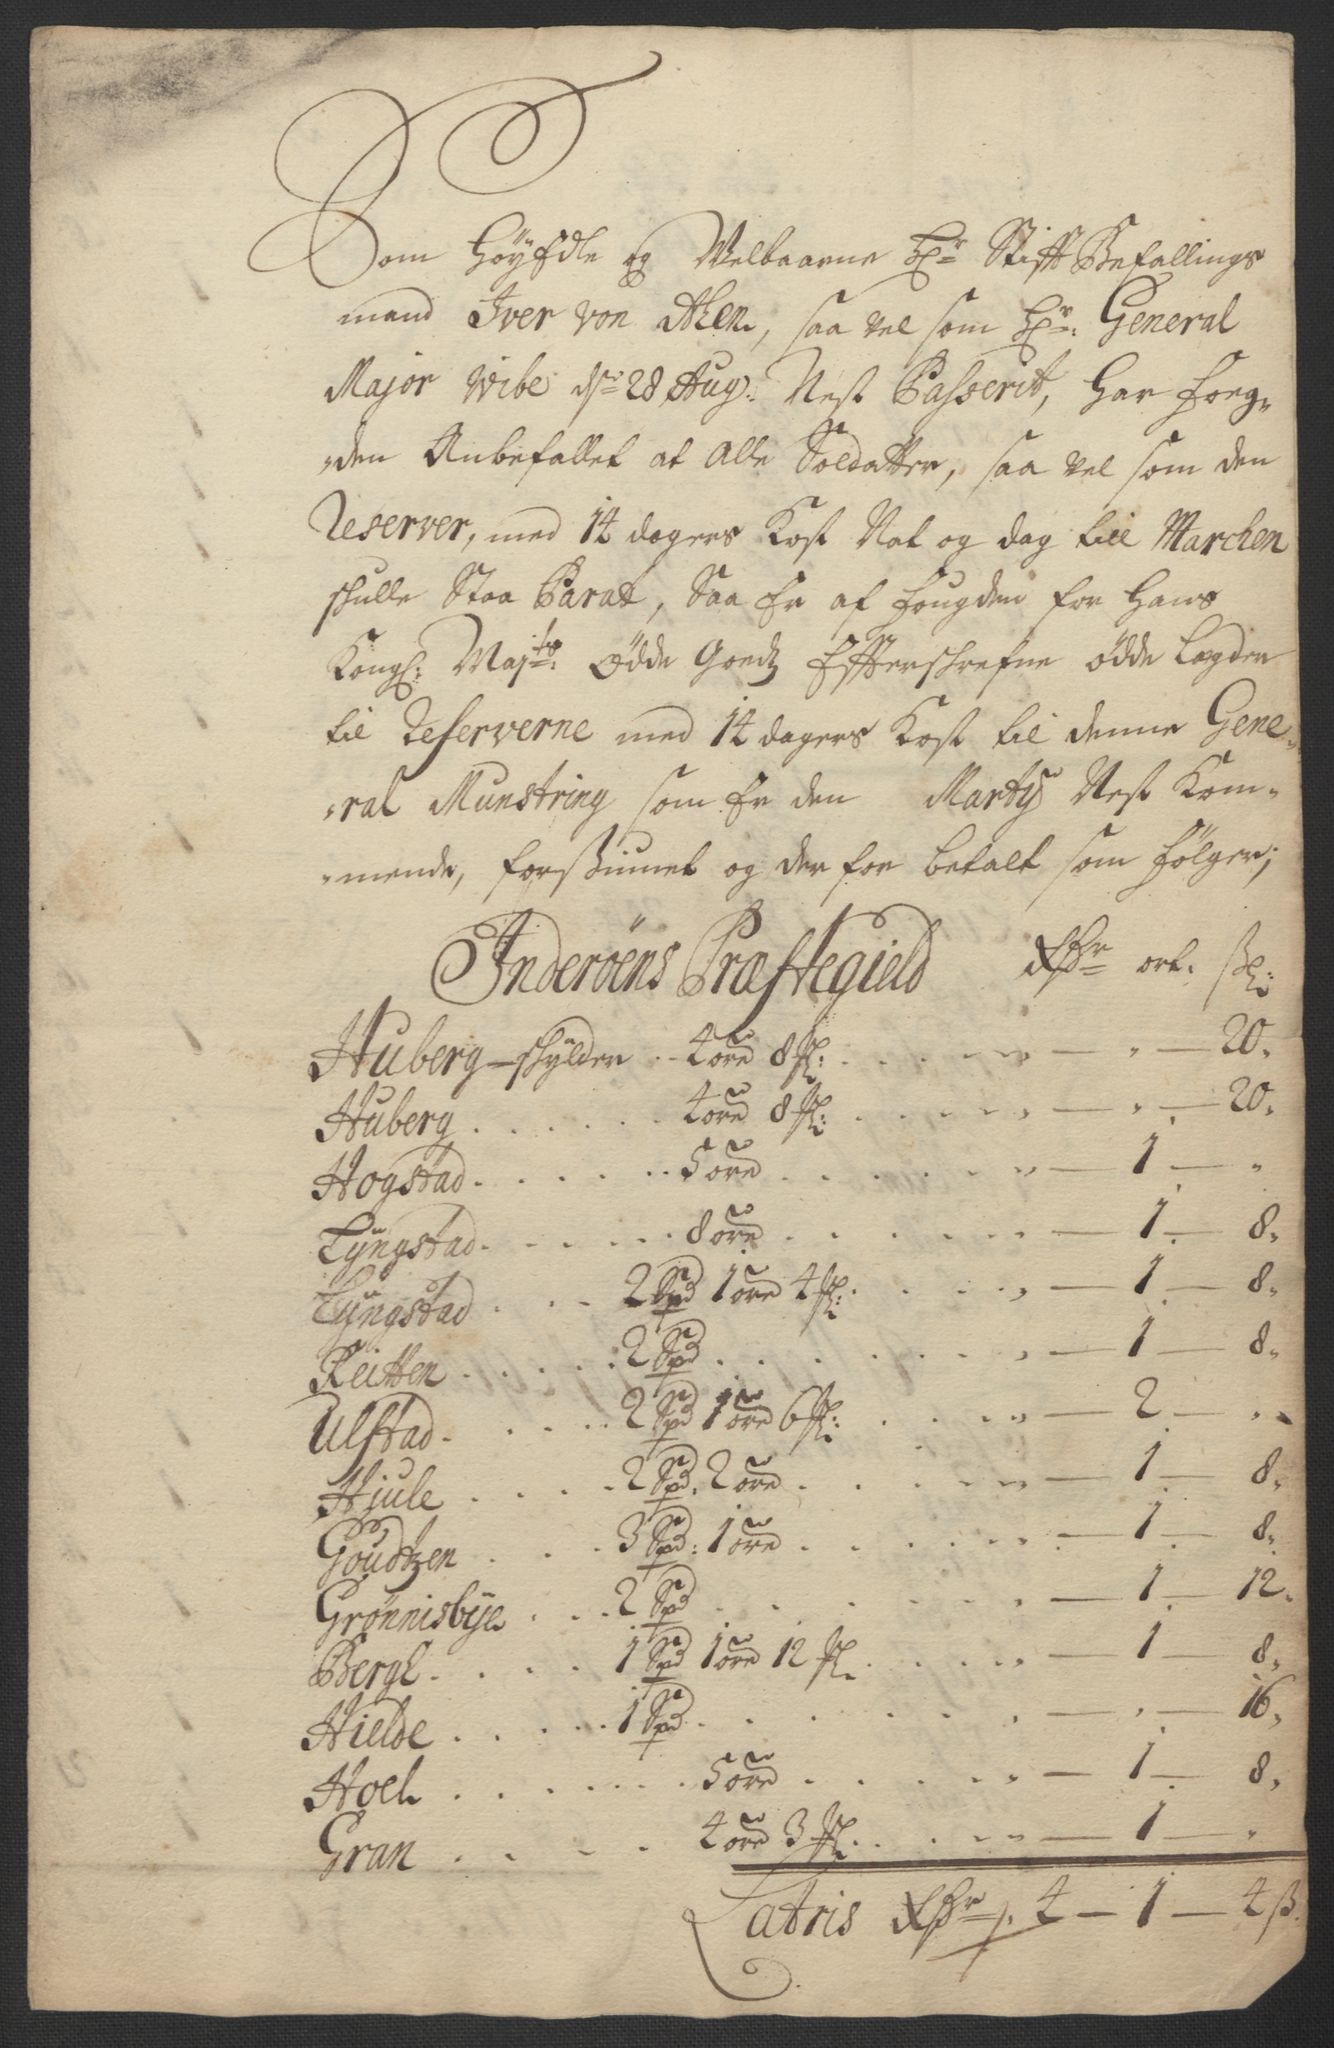 Som Höyædle og Welbaarne Hr Stifft Befallings
mand Iver von Ahlen, saa vel som Hr: General
Major Wibe d: 28 Aug: Nest Passerit, har foeg-
-den Anbefallet at Alle Soldatter, saa vel som den
Reserver, med 14 dagers Kost Nat og dag till Marchen
skulle Staa Parat, Saa Er af fougden for Hans
Kongl: Majts: Ödde Goedz Effterschrefne ödde Lægder
til Reserverne med 14 dagers Kost til denne Gene-
-ral Munstring som Er den Marty Nest Kom-
-mende, forskiunet og der for betalt som fölger;
Inderöens Præstegield Rdr ort: sk:
Huberg-skÿlder .. 4 ore 8 sk: - " - 20,
Huberg . . . 4 ore 8 sk: - " - 20,
Hogstad . . . 5 ore . . . - 1 - "
Lÿngstad . . . 8 ore . . . - 1 - 8,
Lÿngstad . . . 2 Spd 1 ore 4 sk: - 1 - 8,
Reitten . . . 2 Spd . . . - 1 - 8,
Ulstad . . . 2 Spd 1 ore 6 sk: - 2 - "
Hjule . . . 2 Spd. 2 ore . . . - 1 - 8,
Goudtzen . . . 3 Spd: 1 ore . . . - 1 - 8,
Grönnisbÿe . . . 2 Spd . . . - 1 - 12,
Bergl . . . 1 Spd 1 ore 12 sk . . . - 1 - 8,
Hielde . . . 1 Spd . . . - " - 16,
Hoel . . . 5 ore . . . - 1 - 8,
Gran . . . 4 ore 3 sk . . . - 1 - "
Latris Rdr 4 - 1 - 4 ß.